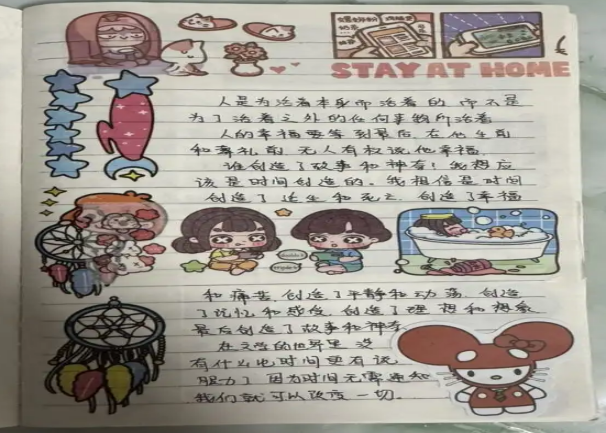 STAY AT HOME
人是为活着本身而活着的,而不是
为了活着之外的任何事物所活着
人的幸福要等到最后,在他生前
和葬礼前,无人有权说他幸福
谁创造了故事和神奇!我想应
该是时间创造的。我相信是时间
创造了诞生和死亡,创造了幸福
和痛苦,创造了平静和动荡,创造
了记忆和感受,创造了理想和想象
最后创造了故事和神奇
在文学的世界里,没
有什么比时间更有说
服力了,因为时间无需通知
我们就可以改变一切。